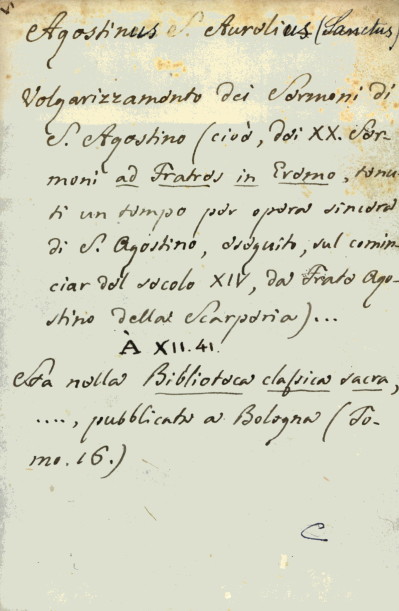 Agostinus S. Aurelius (Sanctus)
Volgarizzamento dei Sermoni di
S. Agostino (cioè, dei XX. Ser-
moni ad Fratres in Eremo, tenu-
ti un tempo per opera sincera
di S. Agostino, eseguito, sul comin-
ciar del secolo XIV, da Frate Ago-
stino della Scarperia)...
À XII.41.
Sta nella Biblioteca classica sacra,
...., pubblicata a Bologna (To-
mo. 16.)
C